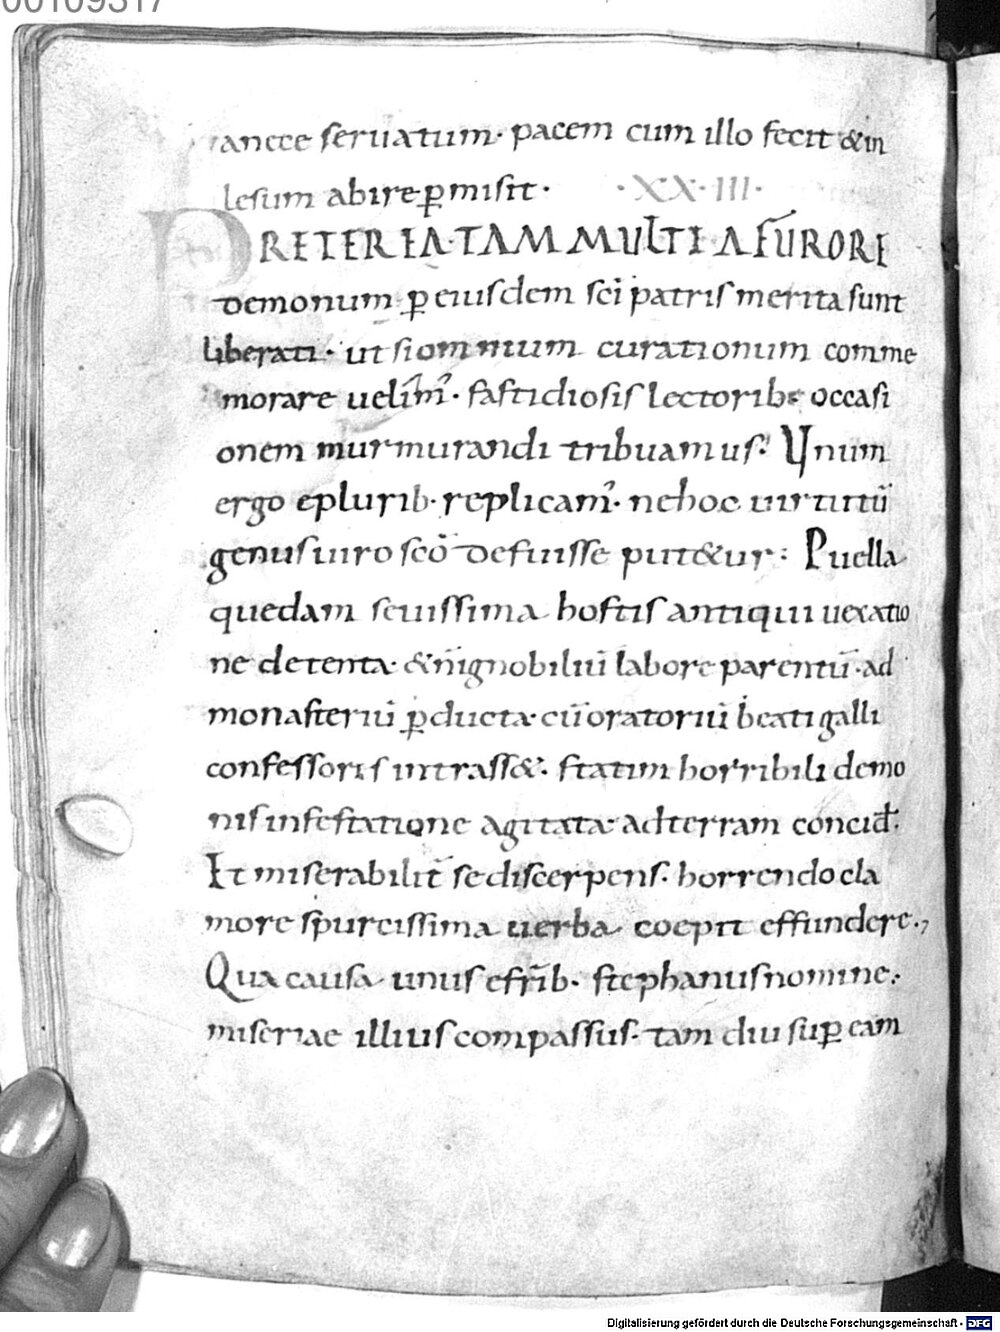 00109317
ancte seruatum· pacem cum illo fecit & in
lesum abire p̲misit· ·XX·III·
PRETEREA·TAM MULTI A FURORE
demonum p̲ eiusdem sc̄i patris merita sunt
liberati· ut si omnium curationum comme
morare uelim᷒· fastidiosis lectorib; occasi
onem murmurandi tribuamus: Vnum
ergo e plurib· replicam᷒· ne hoc uirtutū
genus uiro sc̄o defuisse put&ur: Puella
quedam seuissima hostis antiqui uexatio
ne detenta· & n̄ ignobiliū labore parentū· ad
monasteriū p̲ducta· cū oratoriū beati galli
confessoris intrass&· statim horribili demo
nis infestatione agitata· ad terram concid̄·
Et miserabilit̄ se discerpens· horrendo cla
more spurcissima uerba coepit effundere·,
Qua causa unus e fr̄ib· stephanus nomine·
miseriae illius compassus· tam diu sup̲ eam
Digitalisierung gefördert durch die Deutsche Forschungsgemeinschaft - DFG